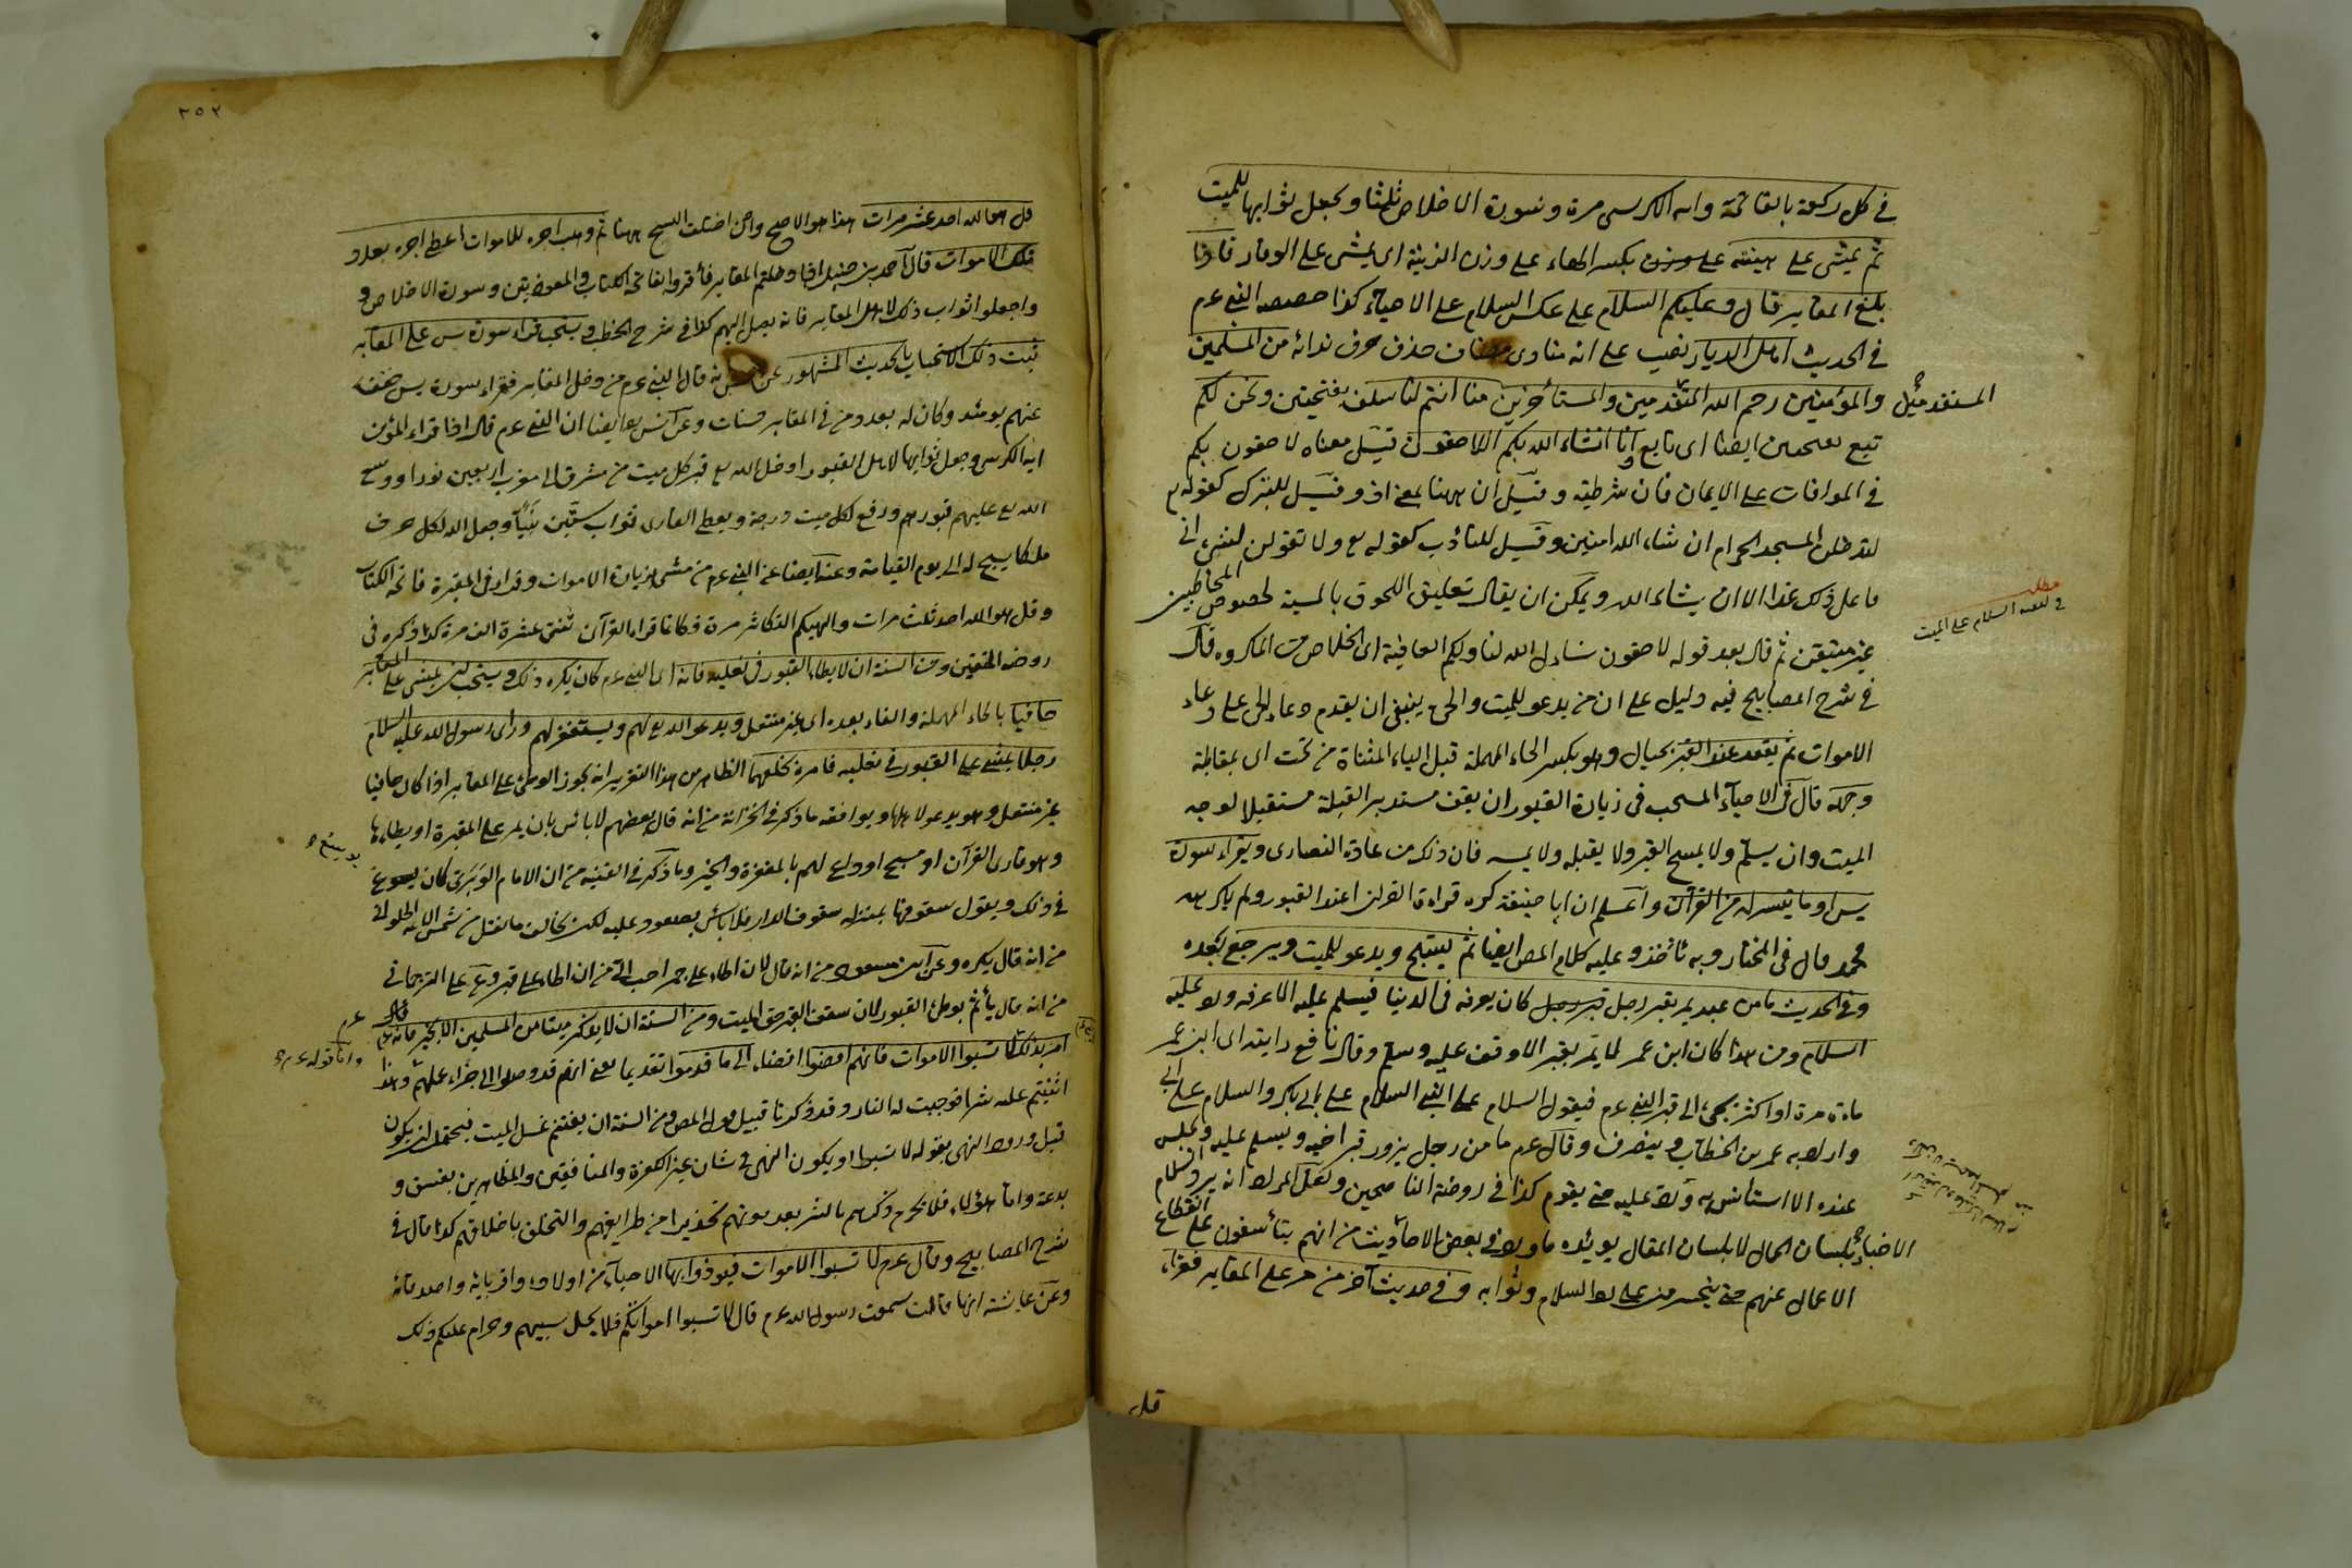 في كل ركعة بالفاتحة واية الكرسي مرة وسورة الاخلاص ثلثا ويجعل ثوابها للميت
ثم يمشي على هينته على وزن بكسر الهاء على وزن الزينة اى يمشي على الوقار فاذا
بلغ المقابر قال وعليكم السلام على عكس السلام على الاحياء كذا خصصه النبي عم
في الحديث اهل الديار نصب على انه منادى مضاف حذف حرف ندائه من المسلمين
والمؤمنين رحم الله المتقدمين والمستأخرين منا انتم لنا سلف بفتحتين ونحن لكم
تبع بفتحتين ايضا اى تابع وانا انشاء الله بكم اللاحقون قيل معناه لاحقون بكم
في الموافات على الايمان فان شرطية وقيل ان ههنا بمعنى اذ وقيل للتبرك كقوله تع
لتدخلن المسجد الحرام ان شاء الله امنين وقيل للتأدب كقوله تع ولا تقولن لشئ اني
فاعل ذلك غدا الا ان يشاء الله ويمكن ان يقال تعليق اللحوق بالمسية لخصوص المخاطبين
غير متيقن ثم قال بعد قوله لاحقون نسأل الله لنا ولكم العافية اى الخلاص من المكروه قال
في شرح المصابيح فيه دليل على ان من يدعو للميت والحى ينبغي ان يقدم دعاء الحى على دعاء
الاموات ثم يقعد عند القبر بحيال وهو بكسر الحاء المهملة قبل الياء المثناة من تحت اى بمقابلة
وجهه قال في الاحياء المستحب في زيارة القبور ان يقف مستدبر القبلة مستقبلا لوجه
الميت وان يسلم ولا يمسح القبر ولا يقبله ولا يمسه فان ذلك من عادة النصارى ويقراء سورة
يس او ما تيسر له من القرآن واعلم ان ابا حنيفة كره قراءة القران عند القبور ولم يكرهه
محمد قال في المختار وبه نأخذ وعليه كلام المص ايضا ثم يسبح ويدعو للميت ويرجع بعده
وفي الحديث ما من عبد يمر بقبر رجل كان يعرفه في الدنيا فيسلم عليه الا عرفه ورد عليه
السلام ومن هذا كان ابن عمر لما يمر بقبر الا وقف عليه وسلم وقال نافع رايته اى ابن عمر
مائة مرة او اكثر يجئ الى قبر النبي عم فيقول السلام على النبي السلام على ابي بكر والسلام على ابي
وارا به عمر بن الخطاب وينصرف وقال عم ما من رجل يزور قبر اخيه ويسلم عليه ويجلس
عنده الا استأنس به ورد عليه حتى يقوم كذا في روضة الناصحين ولعل المراد انه يرد السلام
بلسان الحال لا بلسان المقال يويده ما ورد في بعض الاحاديث من انهم يتأسفون على انقطاع
الاعمال عنهم حتى على رد السلام وثوابه وفي حديث آخر من مر على المقابر فقراء
مطلب
في السلام على الميت
قل
٢٥٢
قل هو الله احد عشر مرات هذا هو الاصح وان اختلف النسخ ههنا ثم وهب اجره للاموات اعطى اجره بعدد
تلك الاموات قال احمد بن حنبل اذا دخلتم المقابر فأقروا بفاتحة الكتاب والمعوذتين وسورة الاخلاص و
واجعلوا ثواب ذلك لاهل المقابر فانه يصل اليهم كذا في شرح الخطب ويستحب قراءة سورة يس على المقابر
ثبت ذلك الاستحباب بالحديث المشهور عن انه قال النبي عم من دخل المقابر فقراء سورة يس خفف
عنهم يومئذ وكان له بعدد من في المقابر حسنات وعن انس ايضا ان النبي عم قال اذا قراء المؤمن
اية الكرسي وجعل ثوابها لاهل القبور ادخل الله تع قبر كل ميت من مشرق الى مغرب اربعين نورا ووسع
الله تع عليهم قبورهم ورفع لكل ميت درجة ويعطي القارى ثواب ستين نبيا وجعل الله لكل حرف
ملكا يسبح له الى يوم القيامة وعنه ايضا عن النبي عم من مشى لزيارة الاموات وقراء في المقبرة فاتحة الكتاب
وقل هو الله احد ثلث مرات والهيكم التكاثر مرة فكانما قراء القرآن ثنتي عشرة الف مرة كذا ذكره في
روضة المتقين ومن السنة ان لا يطاء القبور في نعليه فانه اى النبي عم كان يكره ذلك ويستحب ان يمشي على المقابر
حافيا بالحاء المهملة والفاء بعده اى غير منتعل ويدعو الله تع لهم ويستغفر لهم وراى رسول الله عليه السلام
رجلا يمشي على القبور في نعليه فامره بخلعهما الظاهر من هذا التقرير انه يجوز الوطئ على المقابر اذا كان حافيا
غير منتعل وهو يدعو لاهلها ويوافقه ما ذكر في الخزانة من انه قال بعضهم لا بائس بان يمر على المقبرة او يطاءها
وهو قارئ القرآن او مسبح او داع لهم بالمغفرة والخير وما ذكر في القنية من ان الامام الوبري كان يوسع
في ذلك ويقول سقوفها بمنزلة سقوف الدار فلا بائس بصعود عليه لكن يخالف ما نقل من شمس الائمة الحلواني
من انه قال يكره وعن ابن مسعود من انه قال لان اطاء على جمر احب الى من ان اطاء على قبر وعن على الترجماني
من انه قال يأثم بوطئ القبور لان سقف القبر حق الميت ومن السنة ان لا يذكر ميتا من المسلمين الا بخير فانه عم
امر بذلك قال لا تسبوا الاموات فانهم افضوا افضاء الى ما قدموا تقديما يعني انهم قد وصلوا الى جزاء عملهم وهذا
اثنيتم عليه شرا فوجبت له النار وقد ذكرنا قبيل قول المص ومن السنة ان يغتنم غسل الميت فيحتمل ان يكون
قبل ورود النهي بقوله لا تسبوا او يكون النهي في شان غير الكفرة والمنافقين والمظاهرين بفسق و
بدعة واما هؤلاء فلا يحرم ذكرهم بالشر بعد موتهم تحذيرا من طرايقهم والتخلق باخلاقهم كذا قال في
شرح المصابيح وقال عم لا تسبوا الاموات فتوذوا بها الاحياء من اولاده واقربائه واصدقائه
وعن عايشة انها قالت سمعت رسول الله عم قال لا تسبوا امواتكم فلا يحل سبهم وحرام عليكم ذلك
واما قوله عم